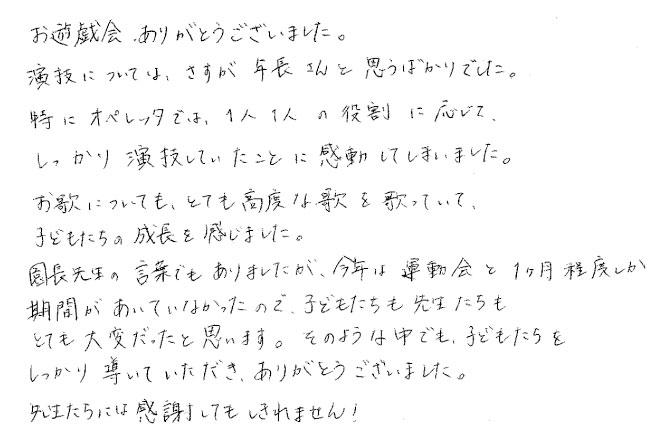 お遊戯会、ありがとうございました。
演技については、さすが年長さんと思うばかりでした。
特にオペレッタでは、1人1人の役割に応じて、
しっかり演技していたことに感動してしまいました。
お歌についても、とても高度な歌を歌っていて、
子どもたちの成長を感じました。
園長先生の言葉でもありましたが、今年は運動会と1ヶ月程度しか
期間があいていなかったので、子どもたちも先生たちも
とても大変だったと思います。そのような中でも、子どもたちを
しっかり導いていただき、ありがとうございました。
先生たちには感謝してもしきれません!